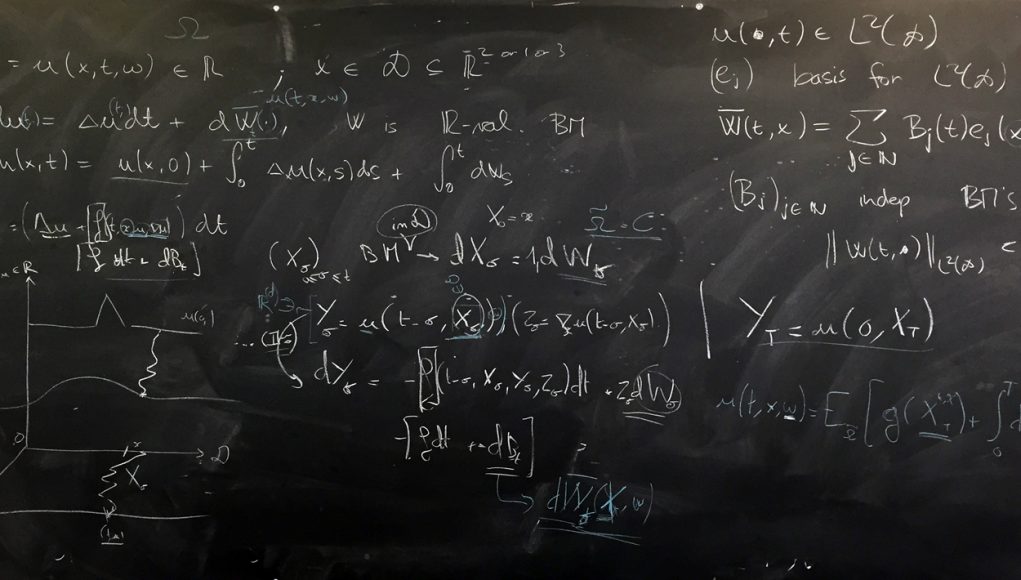 Ω
= u(x,t,w) ∈ ℝ ; x ∈ D ⊆ ℝ^2 or 1 or 3
u(t,x,w)
du(t,·) = Δu(t,·)dt + dW̅(·), W is ℝ-val. BM
u(x,t) = u(x,0) + ∫_0^t Δu(x,s)ds + ∫_0^t dW_s
= (Δu + f(t, ) dt
[f dt + dB_t]
u ∈ ℝ
u(0,·)
0
D
x
X_σ
(X_σ)_{0≤σ≤t} BM in D → dX_σ = 1_d dW_σ
X_0 = x Ω̃ = C
Y_σ = u(t-σ, X_σ) (Z_σ = ∇u(t-σ, X_σ))
dY_σ = -f(t-σ, X_σ, Y_σ, Z_σ)dt + Z_σ dW_σ
-[f dt + dB_t]
→ dW̅_t(X, w)
u(·,t) ∈ L^2(D)
(e_j) basis for L^2(D)
W̅(t,x) = Σ_{j∈ℕ} B_j(t)e_j(x
(B_j)_{j∈ℕ} indep BM's
‖W(t,·)‖_{L^2(D)} <
Y_T = u(0, X_T)
u(t,x,w) = E_Ω̃ [g(X_T^{t,x}) + ∫_0^T d